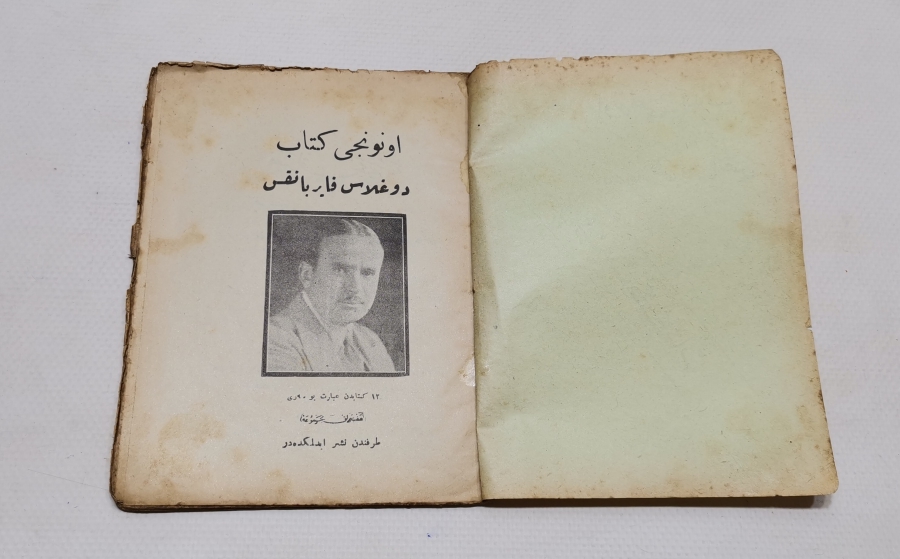 اونونجی کتاب
دوغلاس فایربانقس
١٢ کتابدن عبارت بو
طرفندن نشر ایدلمکده‌در